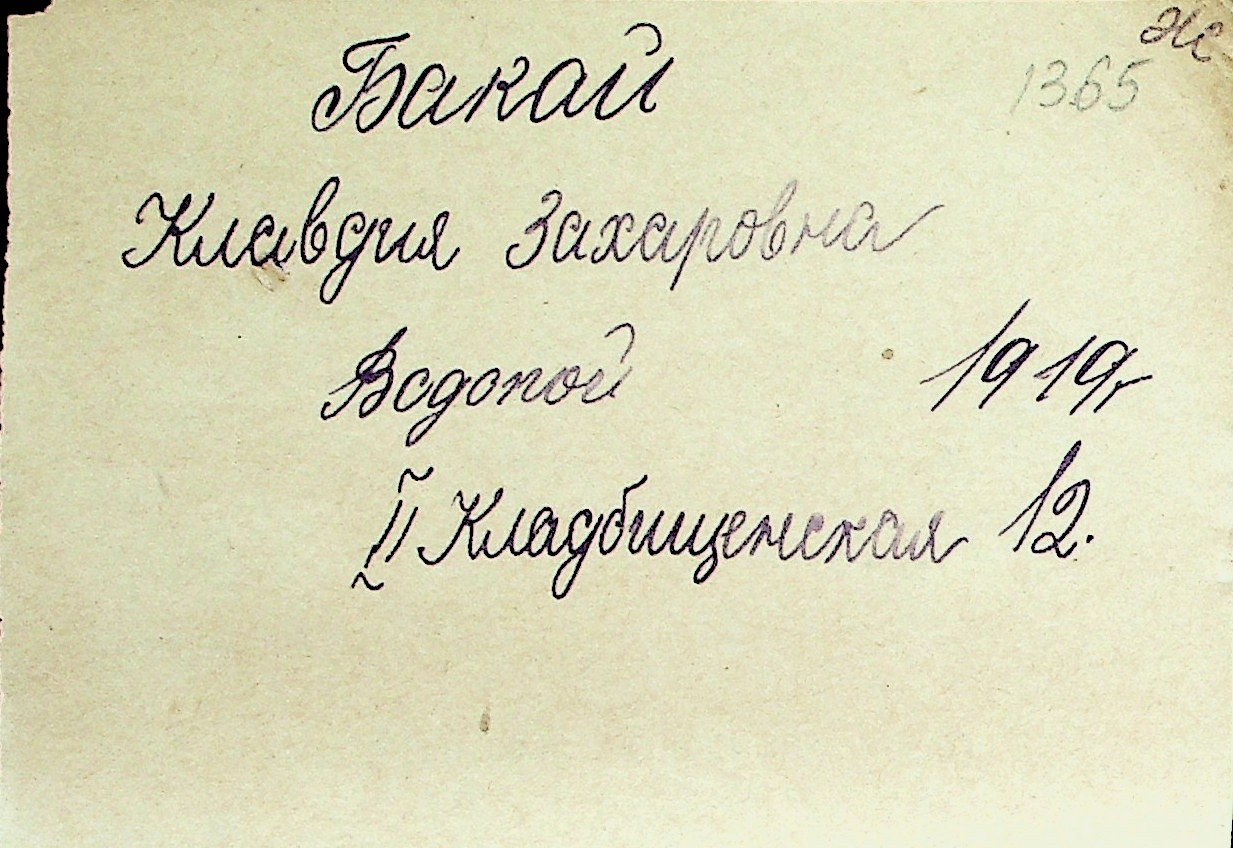 Ж
1365
Бакай
Клавдия Захаровна
Водопой 1919г
II Кладбищенская 12.